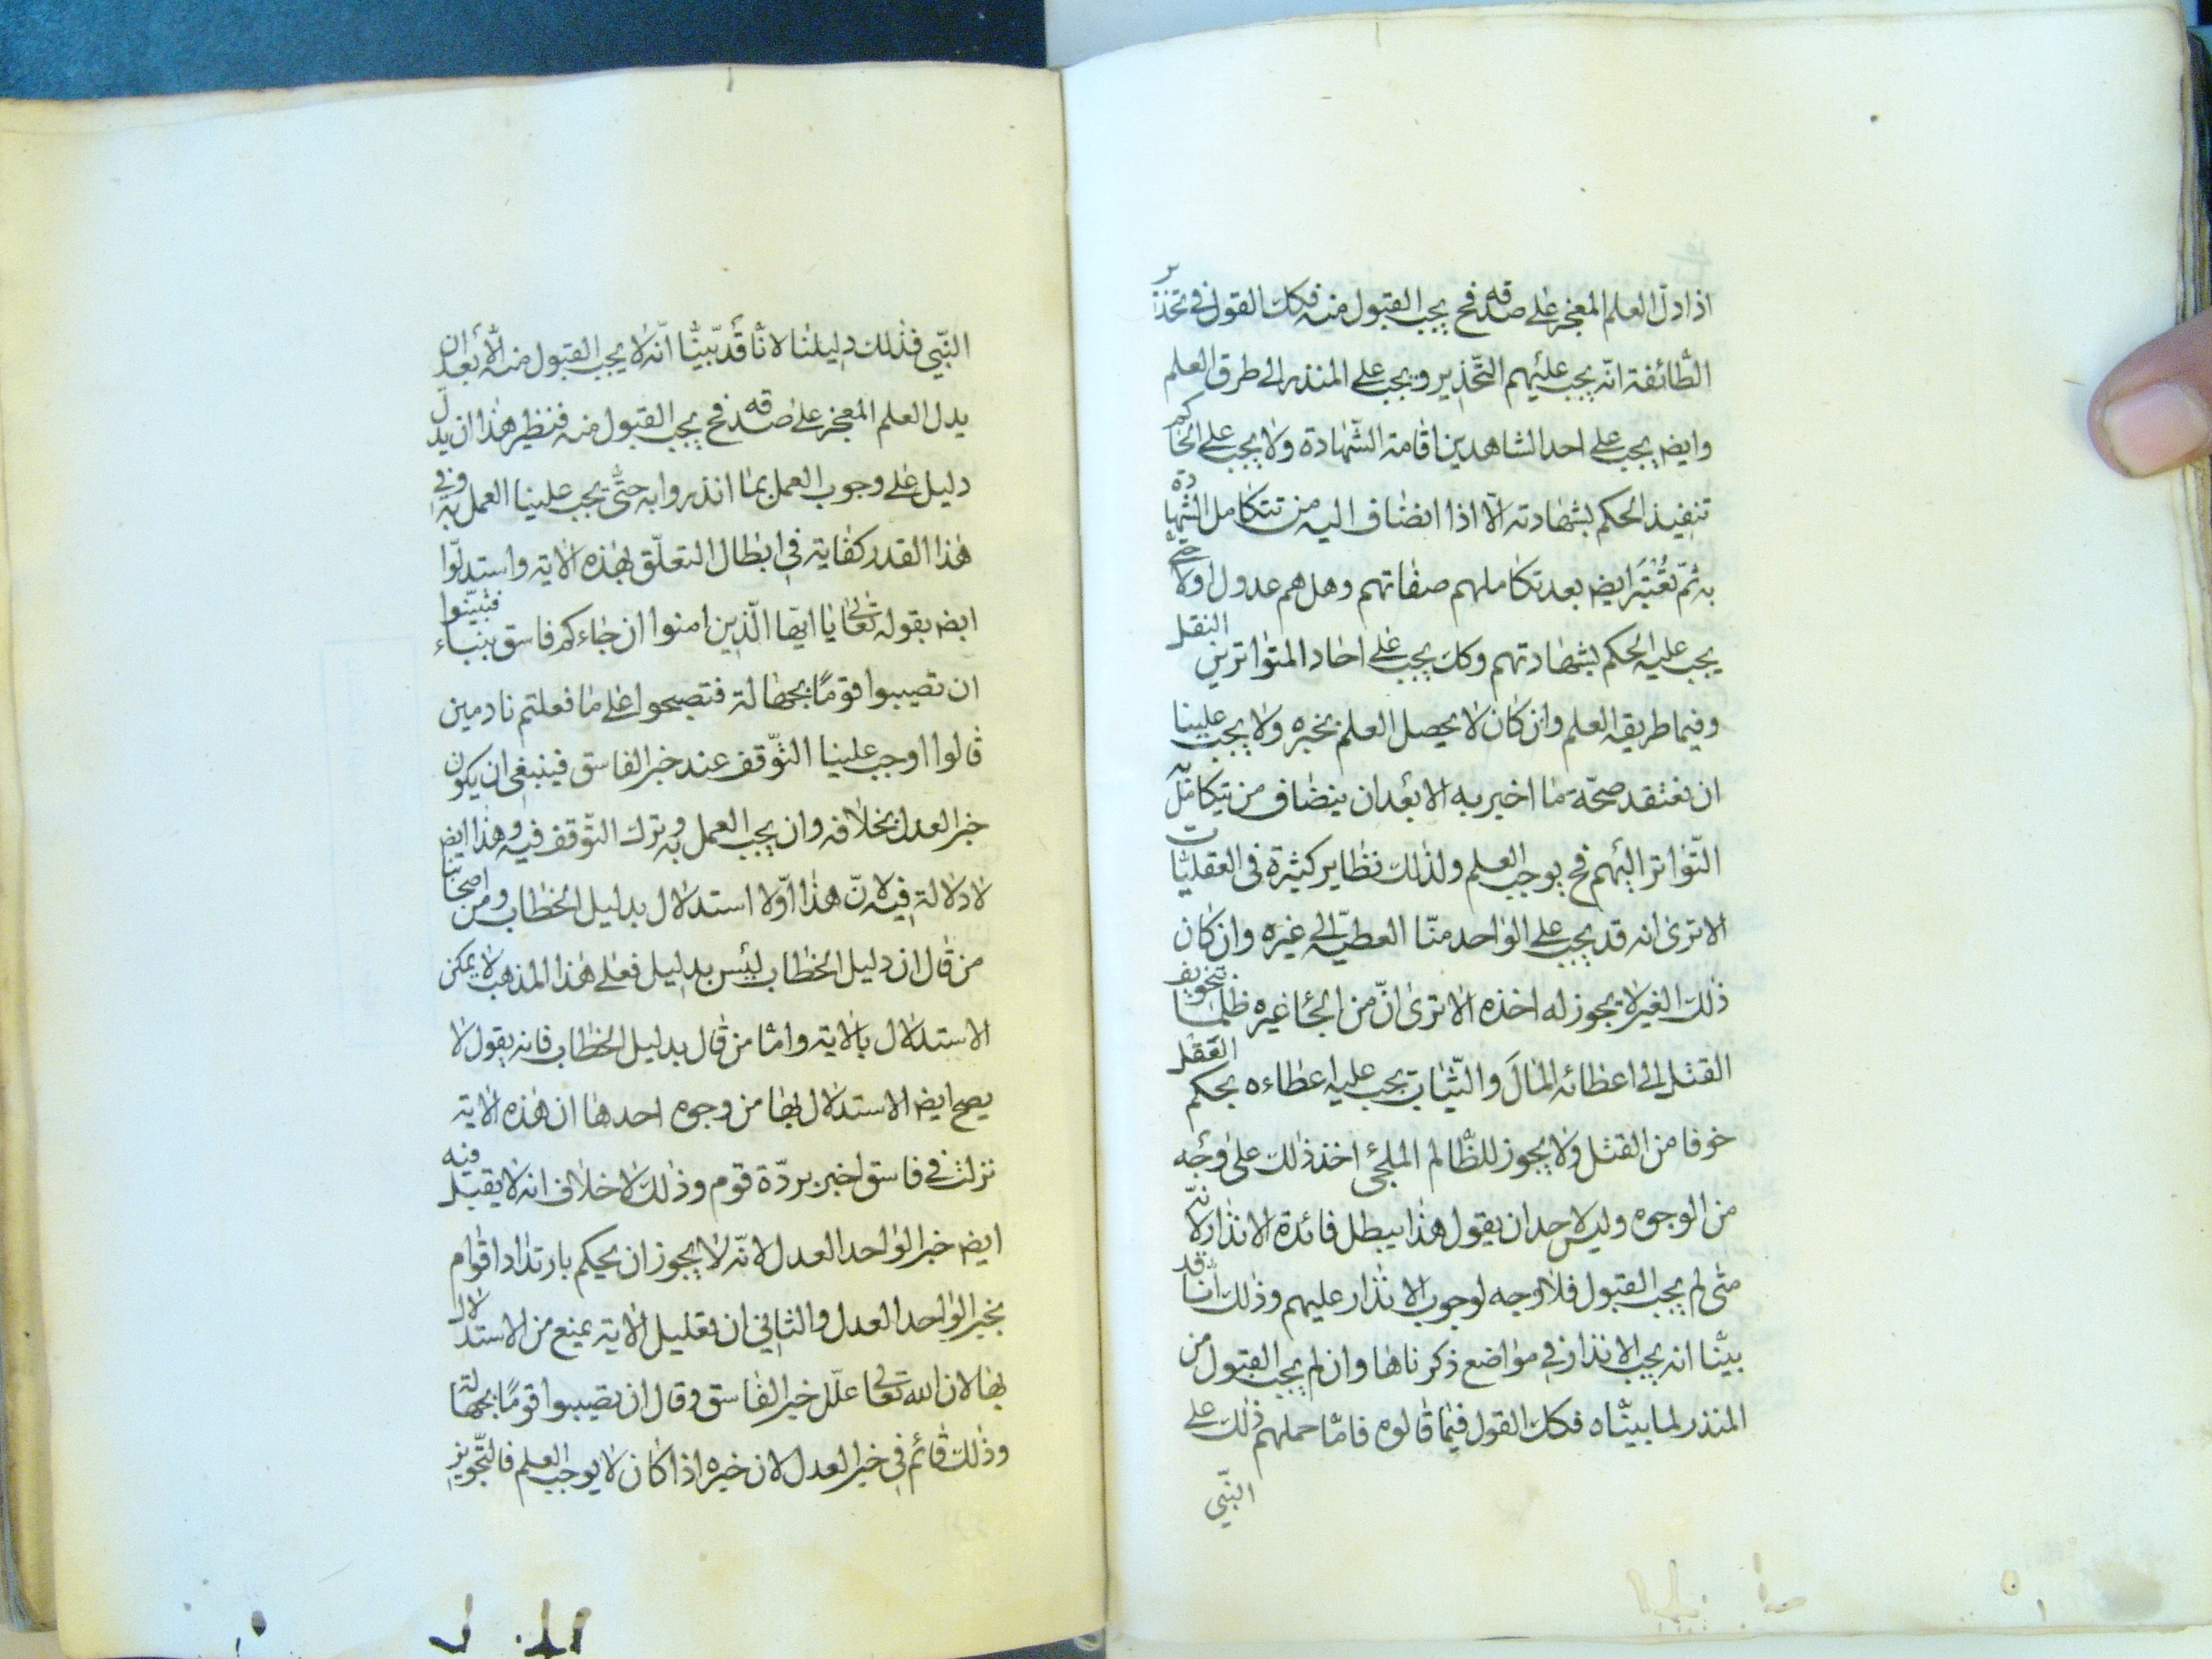 اذا دلّ العلم المعجز على صدقه فح يجب القبول منه فكك القول فى تحذير
الطّائفة انّه يجب عليهم التّحذير ويجب على المنذر الى طرق العلم
وايض يجب على احد الشاهدين اقامة الشّهادة ولا يجب على الحاكم
تنفيذ الحكم بشهادته الّا اذا انضاف اليه من تتكامل الشهادة
به ثمّ تعتبر ايض بعد تكاملهم صفاتهم وهل هم عدول اولا حتّى
يجب عليه الحكم بشهادتهم وكك يجب على احاد المتواترين النقل
وفيما طريقه العلم وان كان لا يحصل العلم بخبره ولا يجب علينا
ان نعتقد صحّة ما اخبر به الا بعد ان ينضاف من يتكامل به
التّواتر اليهم فح يوجب العلم ولذلك نظاير كثيرة فى العقليّات
الا ترى انه قد يجب على الواحد منّا العطيّة الى غيره وان كان
ذلك الغير لا يجوز له اخذه الا ترى انّ من الجأ غيره ظلما بتخويف
القتل الى اعطائه المال والثّياب يجب عليه اعطاءه بحكم العقل
خوفا من القتل ولا يجوز للظّالم الملجئ اخذ ذلك على وجه
من الوجوه وليس لاحد ان يقول هذا يبطل فائدة الانذار لانّه
متى لم يجب القبول فلا وجه لوجوب الانذار عليهم وذلك انّا قد
بيّنا انه يجب الانذار فى مواضع ذكرناها وان لم يجب القبول من
المنذر لما بيّنّاه فكك القول فيما قالوه فامّا حملهم ذلك على
النّبي
النّبي فذلك دليلنا لانّا قد بيّنّا انّه لا يجب القبول منه الّا بعد ان
يدل العلم المعجز على صدقه فح يجب القبول منه فنظير هذا ان يدل
دليل على وجوب العمل بما انذروا به حتّى يجب علينا العمل به وفى
هذا القدر كفاية فى ابطال التعلّق بهذه الاية واستدلّوا
ايض بقوله تعالى يا ايّها الّذين امنوا ان جاءكم فاسق بنباء فتبيّنوا
ان تصيبوا قومًا بجهالة فتصبحوا على ما فعلتم نادمين
قالوا اوجب علينا التّوقف عند خبر الفاسق فينبغى ان يكون
خبر العدل بخلافه وان يجب العمل به وترك التّوقف فيه وهذا ايض
لا دلالة فيه لانّ هذا اوّلا استدلال بدليل الخطاب ومن اصحابنا
من قال ان دليل الخطاب ليس بدليل فعلى هذا المذهب لا يمكن
الاستدلال بالاية وامّا من قال بدليل الخطاب فانه يقول لا
يصح ايض الاستدلال بها من وجوه احدها ان هذه الاية
نزلت فى فاسق اخبر بردّة قوم وذلك لا خلاف انه لا يقبل فيه
ايض خبر الواحد العدل لانّه لا يجوز ان يحكم بارتداد اقوام
بخبر الواحد العدل والثانى ان تعليل الاية يمنع من الاستدلال
بها لان الله تعالى علّل خبر الفاسق وقال ان تصيبوا قومًا بجهالة
وذلك قائم فى خبر العدل لان خبره اذا كان لا يوجب العلم فالتّجويز